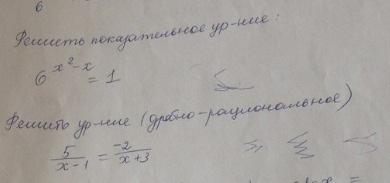 6
Решить показательное ур-ние:
6^x²-x = 1
Решить ур-ние (дробно-рациональное)
5/x-1 = -2/x+3